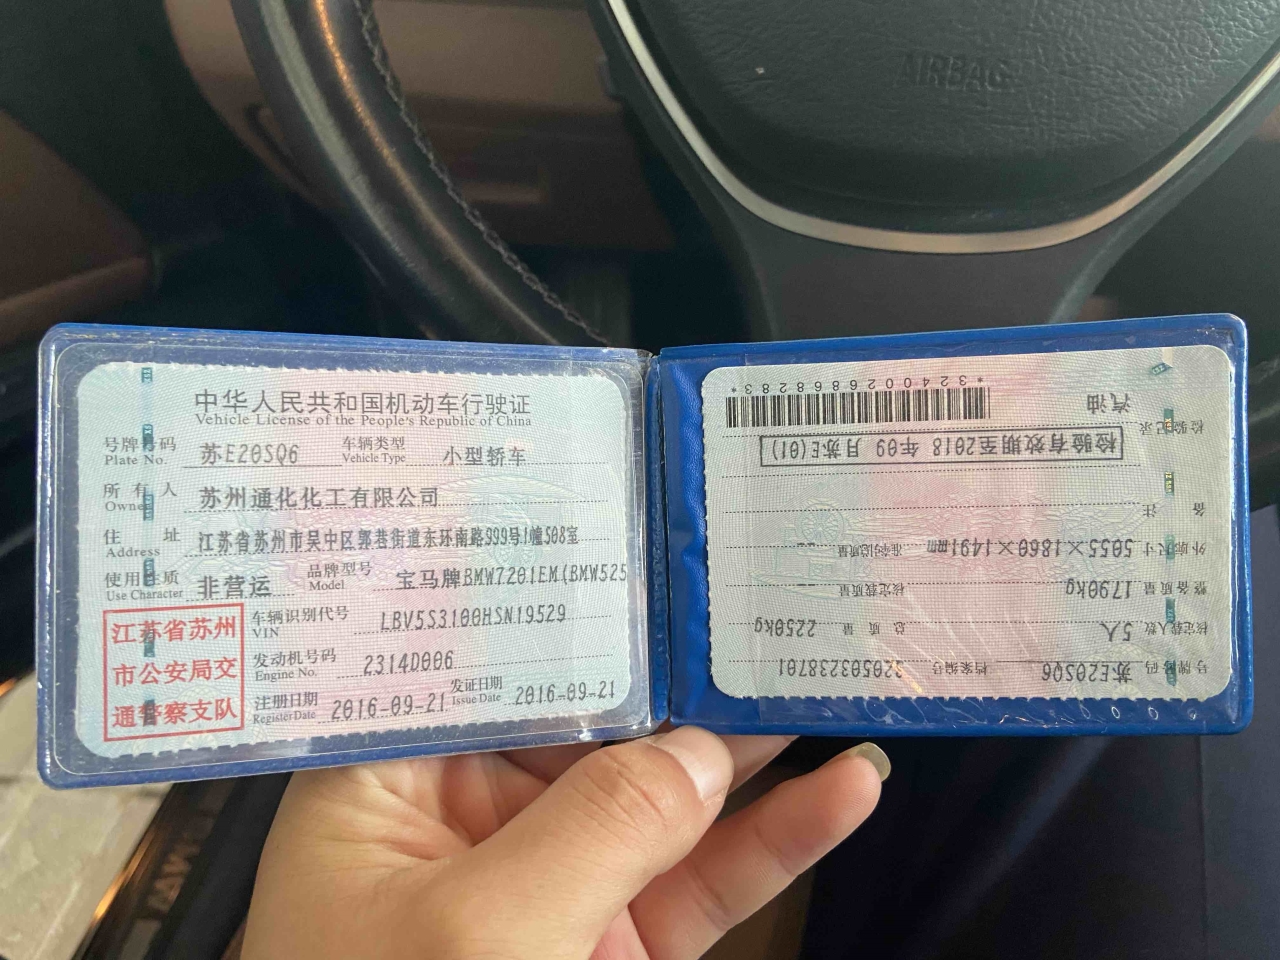 AIRBAG
中华人民共和国机动车行驶证
Vehicle License of the People's Republic of China
号牌号码 苏E20SQ6 车辆类型 小型轿车
Plate No. Vehicle Type
所有人 苏州通化化工有限公司
Owner
住址 江苏省苏州市吴中区郭巷街道东环南路999号1幢508室
Address
使用性质 非营运 品牌型号 宝马牌BMW7201EM(BMW525
Use Character Model
江苏省苏州
市公安局交
通警察支队
车辆识别代号 LBV5S3100HSN19529
VIN
发动机号码 2314D006
Engine No.
注册日期 2016-09-21 发证日期 2016-09-21
Register Date Issue Date
号牌号码 苏E20SQ6 档案编号 320503238701
核定载人数 5人 总质量 2250kg
整备质量 1790kg 核定载质量
外廓尺寸 5055×1860×1491mm 准牵引总质量
备注
检验有效期至2018年09月苏E(01)
检验记录
汽油
*3240026868283*